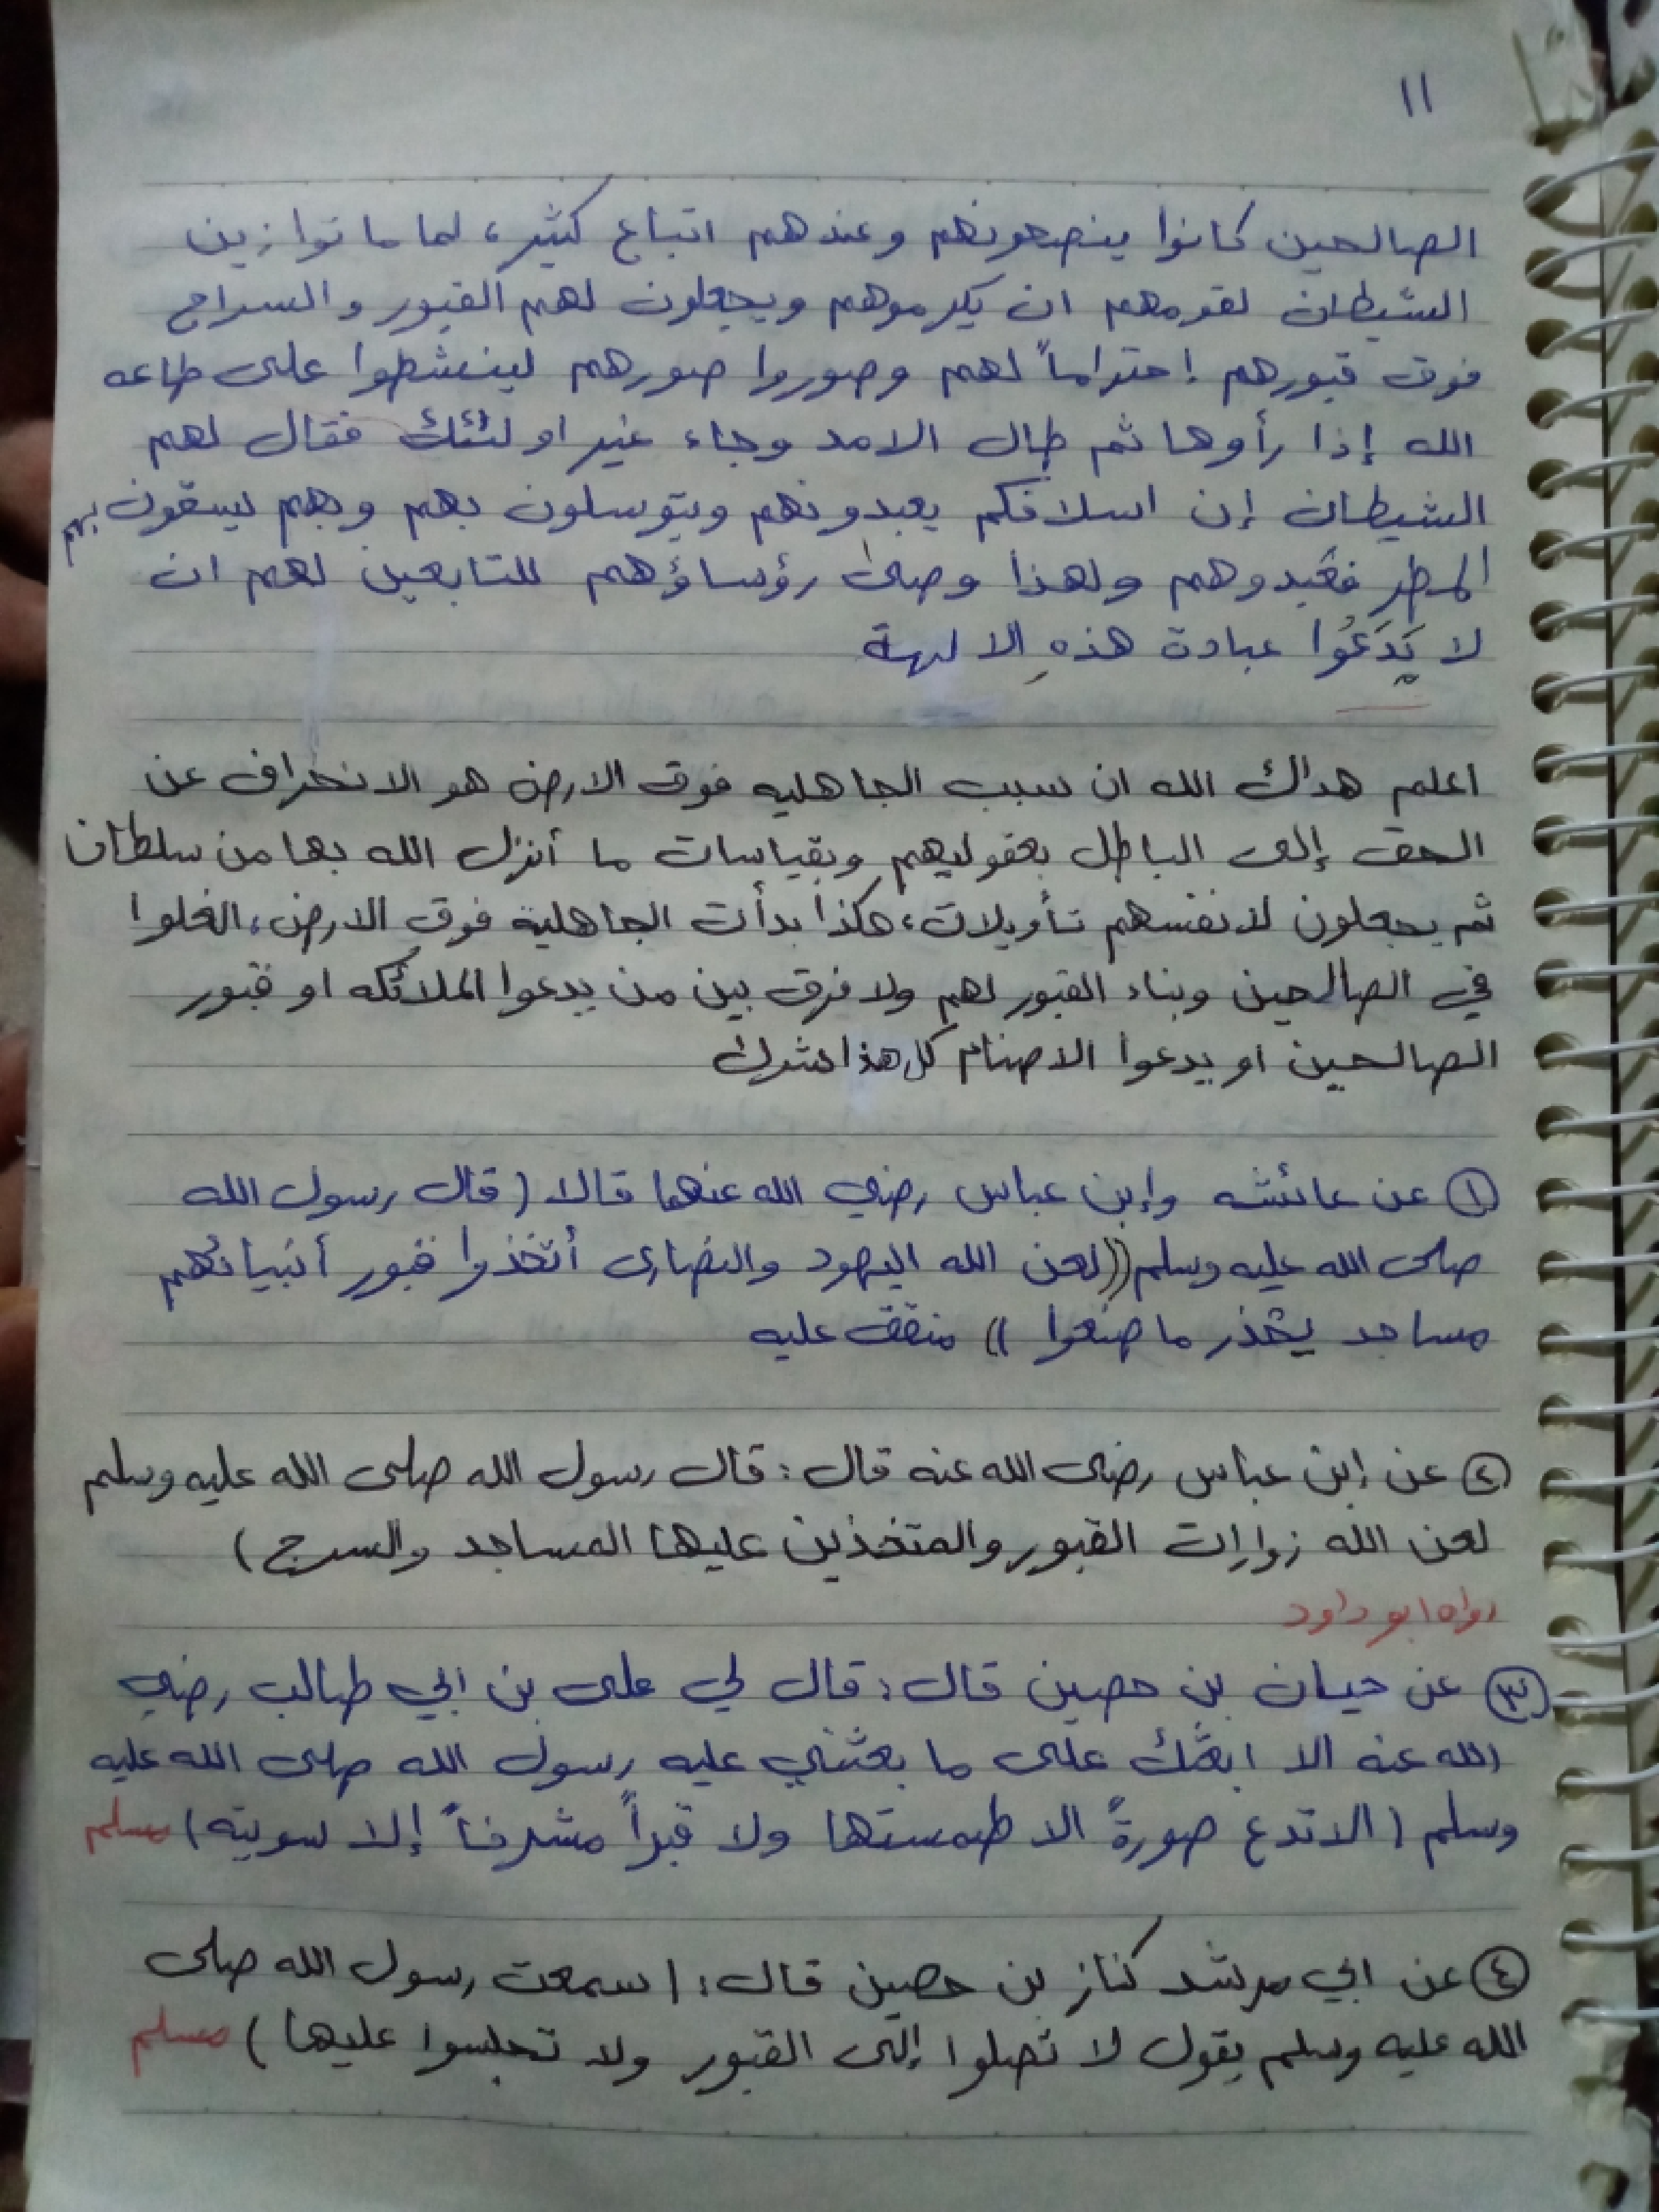 ١١
الصالحين كانوا ينصحونهم وعندهم اتباع كثير، لما ماتوا زين
الشيطان لقومهم ان يكرموهم ويجعلون لهم القبور والسراج
فوق قبورهم إحتراماً لهم وصوروا صورهم لينشطوا على طاعه
الله إذا رأوها ثم طال الامد وجاء غير اولئك فقال لهم
الشيطان إن اسلافكم يعبدونهم ويتوسلون بهم وبهم يسقون بهم
المطر فعبدوهم ولهذا وصى رؤساؤهم للتابعين لهم ان
لا يَدَعُوا عبادة هذهِ الالهة
اعلم هداك الله ان سبب الجاهليه فوق الارض هو الانحراف عن
الحق إلى الباطل بعقوليهم وبقياسات ما أنزل الله بها من سلطان
ثم يجعلون لانفسهم تأويلات، هكذا بدأت الجاهلية فوق الارض، الغلوا
في الصالحين وبناء القبور لهم ولا فرق بين من يدعوا الملائكه او قبور
الصالحين او يدعوا الاصنام كل هذا شرك
١ عن عائشه وإبن عباس رضي الله عنهما قالا (قال رسول الله
صلى الله عليه وسلم ((لعن الله اليهود والنصارى أتخذوا قبور أنبيائهم
مساجد يحذر ما صنعوا )) متفق عليه
٢ عن إبن عباس رضى الله عنه قال: قال رسول الله صلى الله عليه وسلم
لعن الله زوارات القبور والمتخذين عليها المساجد والسرج)
رواه ابو داود
٣ عن حيان بن حصين قال: قال لي على بن ابي طالب رضي
الله عنه الا ابعثك على ما بعثني عليه رسول الله صلى الله عليه
وسلم (الا تدع صورةً الا طمستها ولا قبراً مشرفاً إلا سويته) مسلم
٤ عن ابي مرشد كناز بن حصين قال: (سمعت رسول الله صلى
الله عليه وسلم يقول لا تصلوا إلى القبور ولا تجلسوا عليها) مسلم